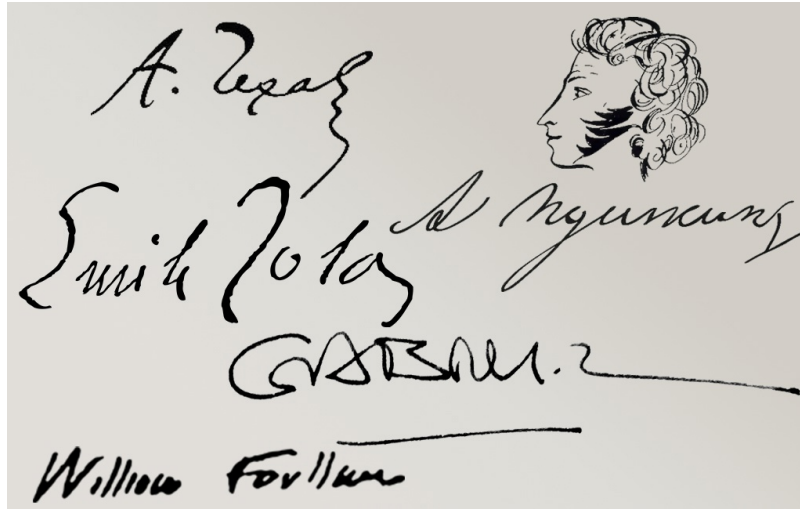 А. Чехов
А Пушкинъ
Emile Zola
GABRIEL.
William Faulkner